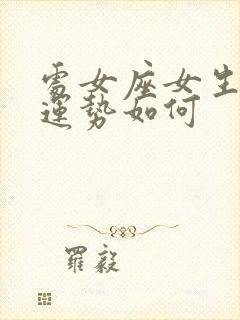 處女座女生
運勢如何
羅毅